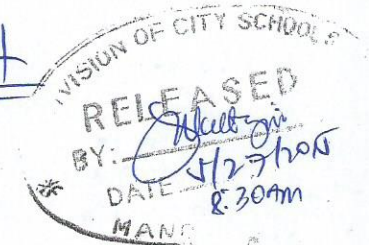 VISION OF CITY SCHOOLS
RELEASED
BY:
DATE 5/27/2015
8:30AM
MAN